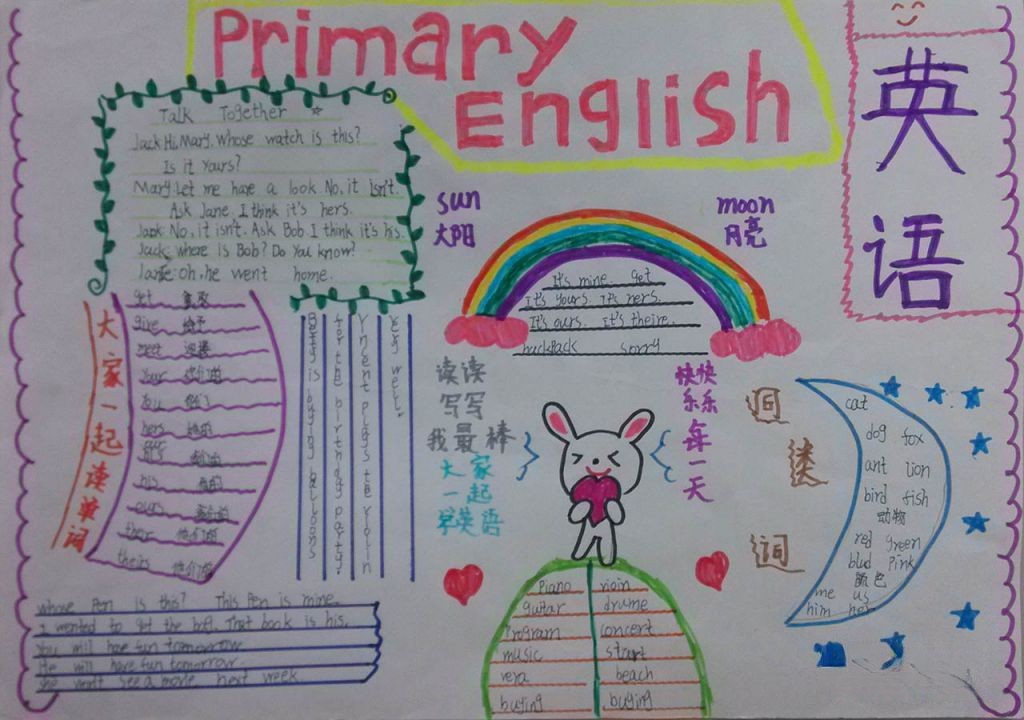 Primary
English
英
语
Talk Together
Jack: Hi, Mary. Whose watch is this?
Is it yours?
Mary: Let me have a look. No, it isn't.
Ask Jane, I think it's hers.
No, it isn't. Ask Bob. I think it's his.
Jack: where is Bob? Do You know?
Jane: Oh, he went home.
sun
太阳
moon
月亮
It's mine get
It's yours. It's hers.
It's ours. it's theire.
backpack sorry
大家一起读单词
get
give 给予
meet
your
you
hers 她的
his 他的
ours
their 他们的
theirs 他们的
Betty is buying balloons
for the birthday party.
Vnsent plays the violin
very well.
读读
写写
我最棒
大家
一起
学英语
快快
乐乐
每一天
词
类
cat
dog fox
ant lion
bird fish
动物
red green
blud Pink
颜色
me us
him her
Piano
guitar drume
Program concert
music start
beach
buying buying
whose Pen is this? This Pen is mine.
I wented to got the That book is his.
You will have fun tomorrow
He will have fun tomorrow.
She went see a movie next week.